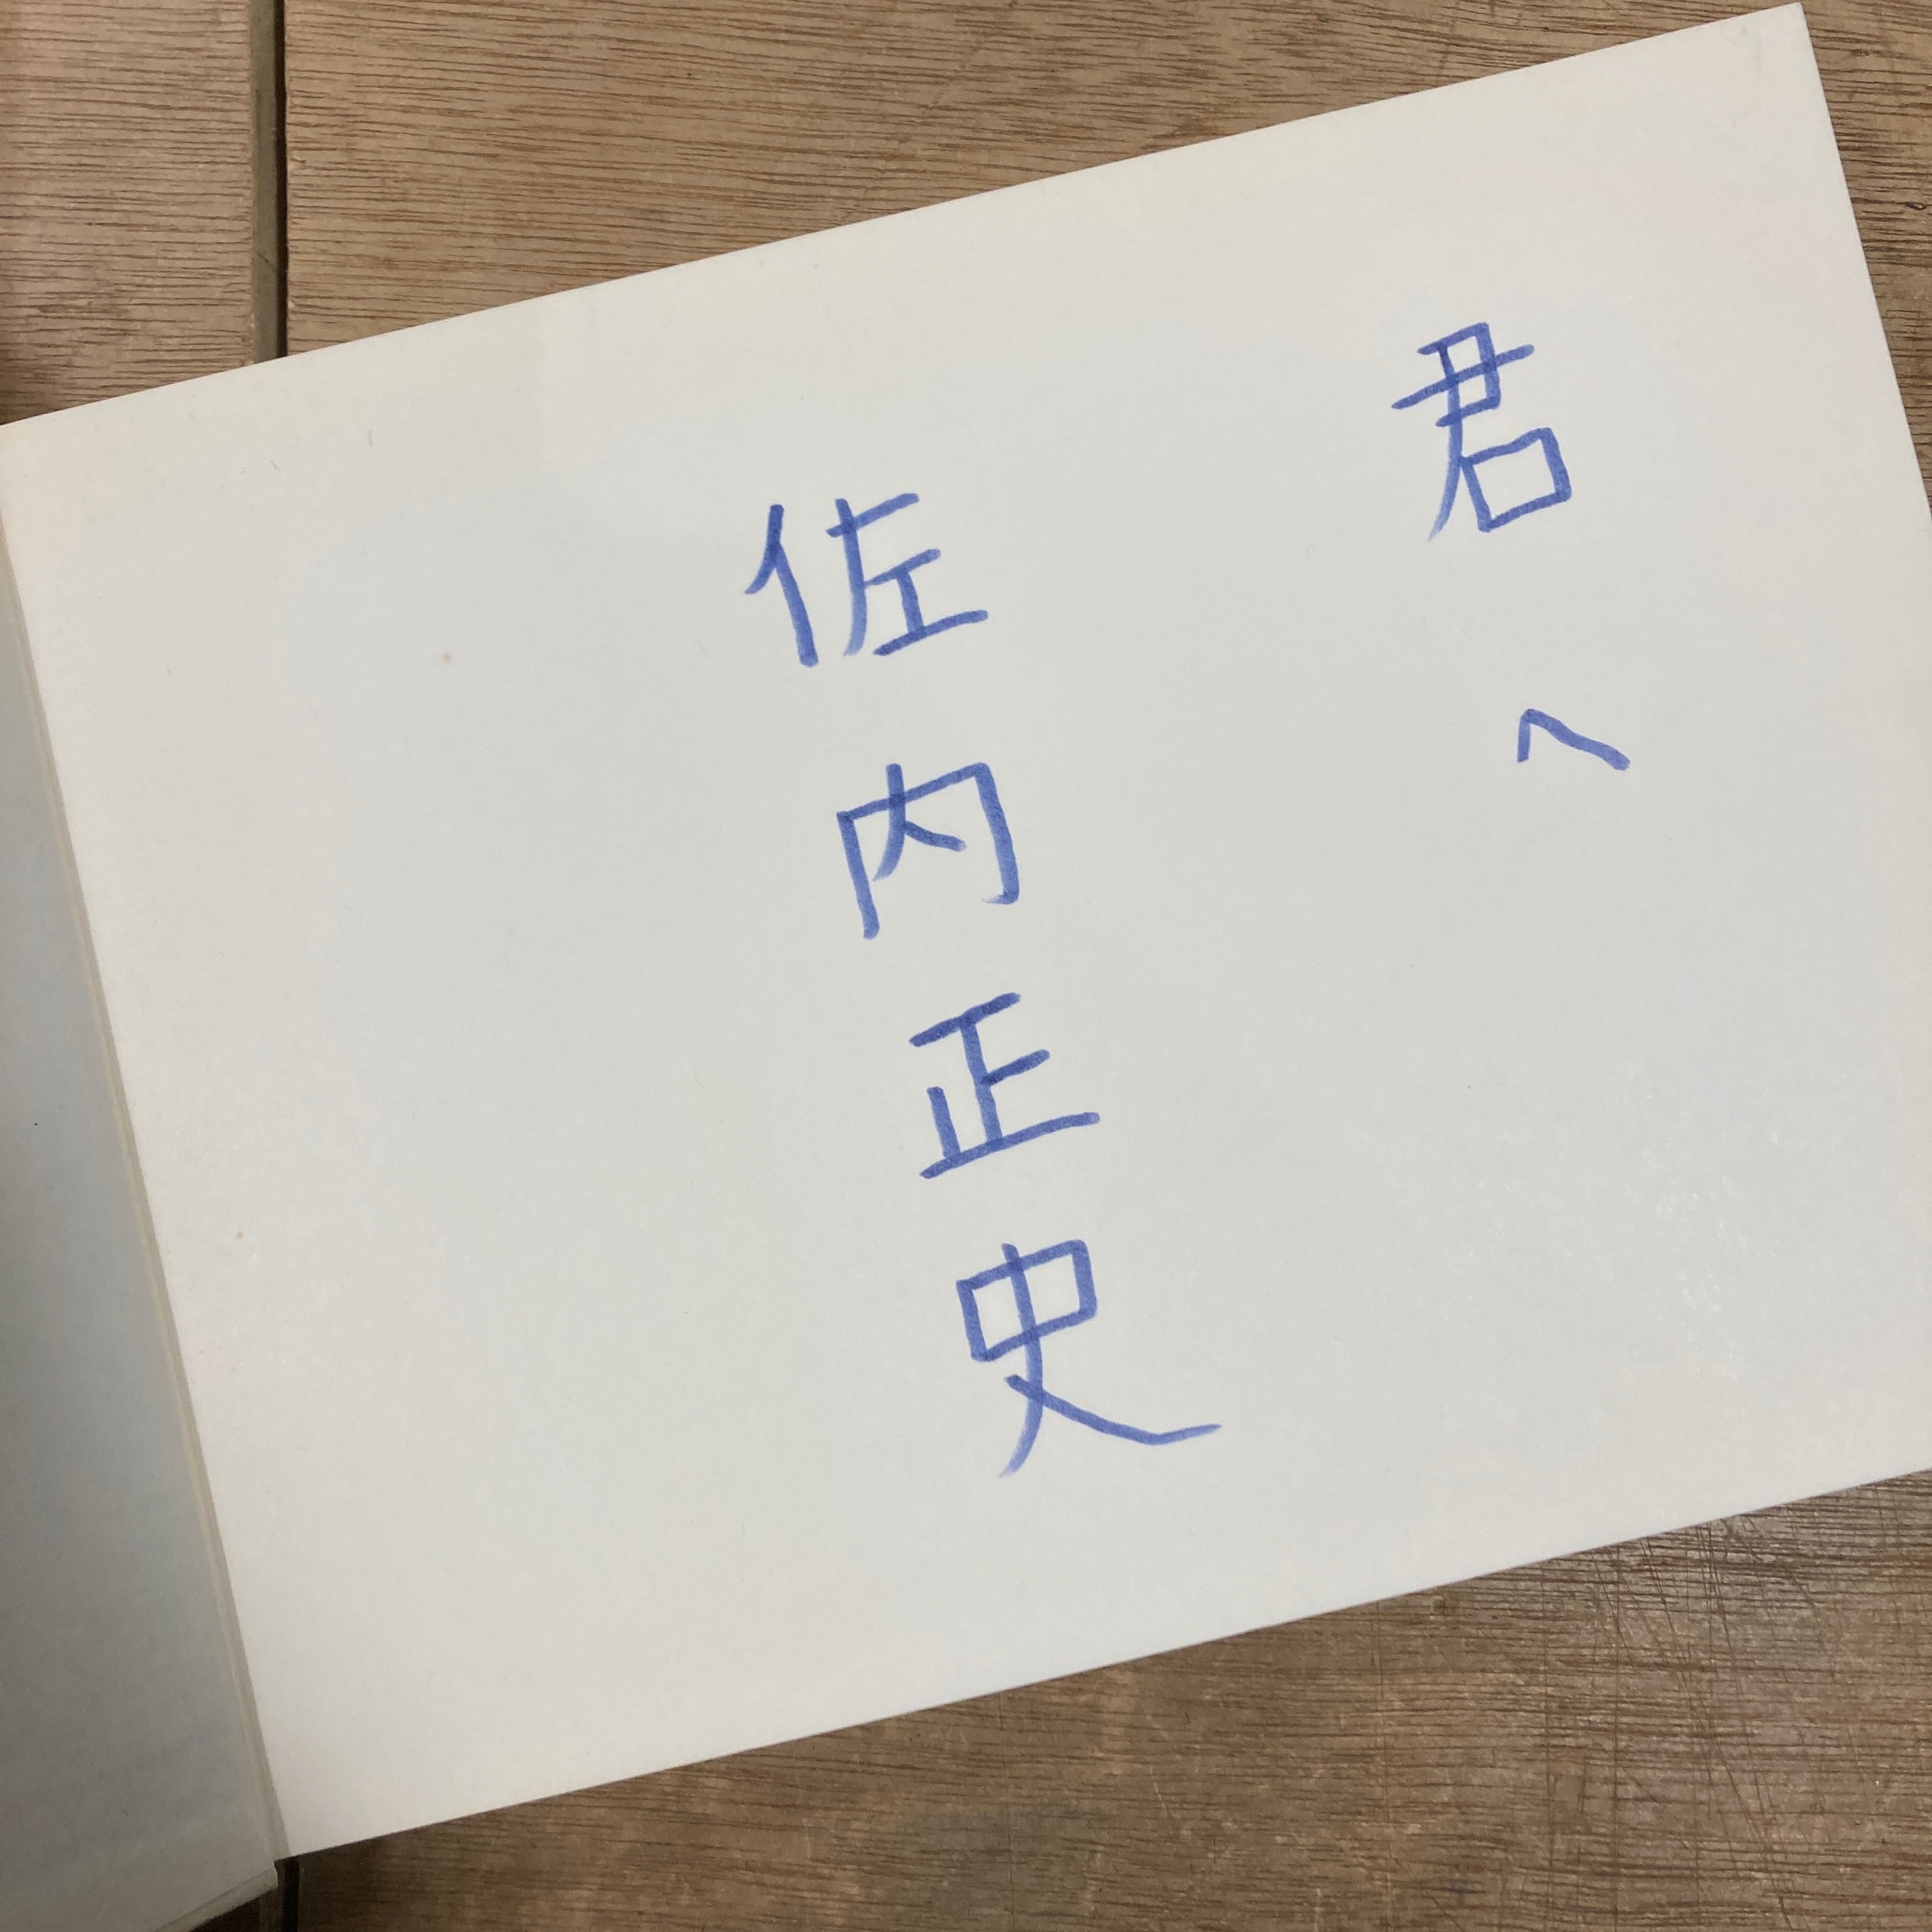 君へ
佐内正史